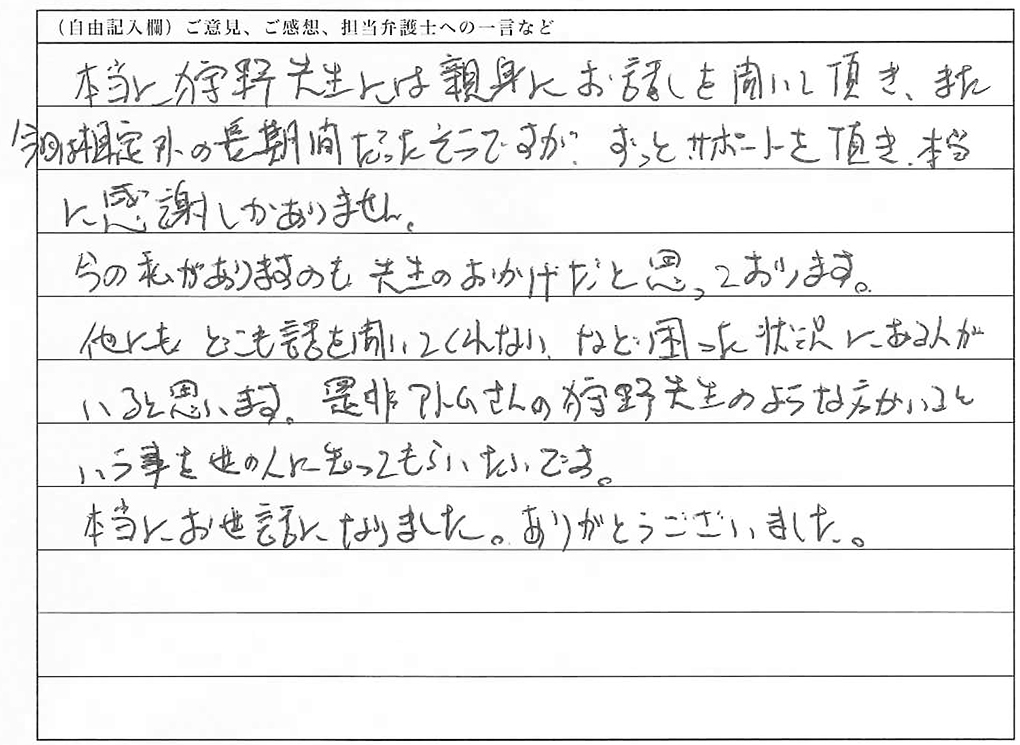 （自由記入欄）ご意見、ご感想、担当弁護士への一言など
本当に狩野先生には親身にお話しを聞いて頂き、また
今回は想定外の長期間だったそうですが、ずっとサポートを頂き、本当
に感謝しかありません。
今の私がありますのも先生のおかげだと思っております。
他にもどこも話を聞いてくれない、など困った状況にある人が
いると思います。是非アトムさんの狩野先生のような方がいると
いう事を世の人に知ってもらいたいです。
本当にお世話になりました。ありがとうございました。